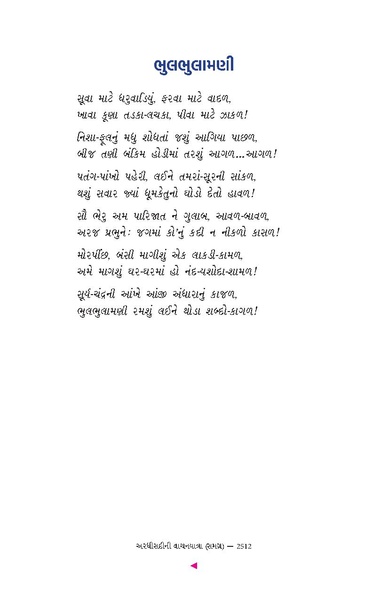 ભુલભુલામણી
સૂવા માટે ધરુવાડિયું, ફરવા માટે વાદળ,
ખાવા કૂણા તડકા-લચકા, પીવા માટે ઝાકળ!
નિશા-ફૂલનું મધુ શોધતાં જશું આગિયા પાછળ,
બીજ તણી બંકિમ હોડીમાં તરશું આગળ...આગળ!
પતંગ-પાંખો પહેરી, લઈને તમરાં-સૂરની સાંકળ,
થશું સવાર જ્યાં ધૂમકેતુનો ઘોડો દેતો હાવળ!
સૌ ભેરુ અમ પારિજાત ને ગુલાબ, આવળ-બાવળ,
અરજ પ્રભુનેઃ જગમાં કો'નું કદી ન નીકળો કાસળ!
મોરપીંછ, બંસી માગીશું એક લાકડી-કામળ,
અમે માગશું ઘર-ઘરમાં હો નંદ-યશોદા-શામળ!
સૂર્ય-ચંદ્રની આંખે આંજી અંધારાનું કાજળ,
ભુલભુલામણી રમશું લઈને થોડા શબ્દો-કાગળ!
અરધીસદીની વાચનયાત્રા (સમગ્ર) — 2512